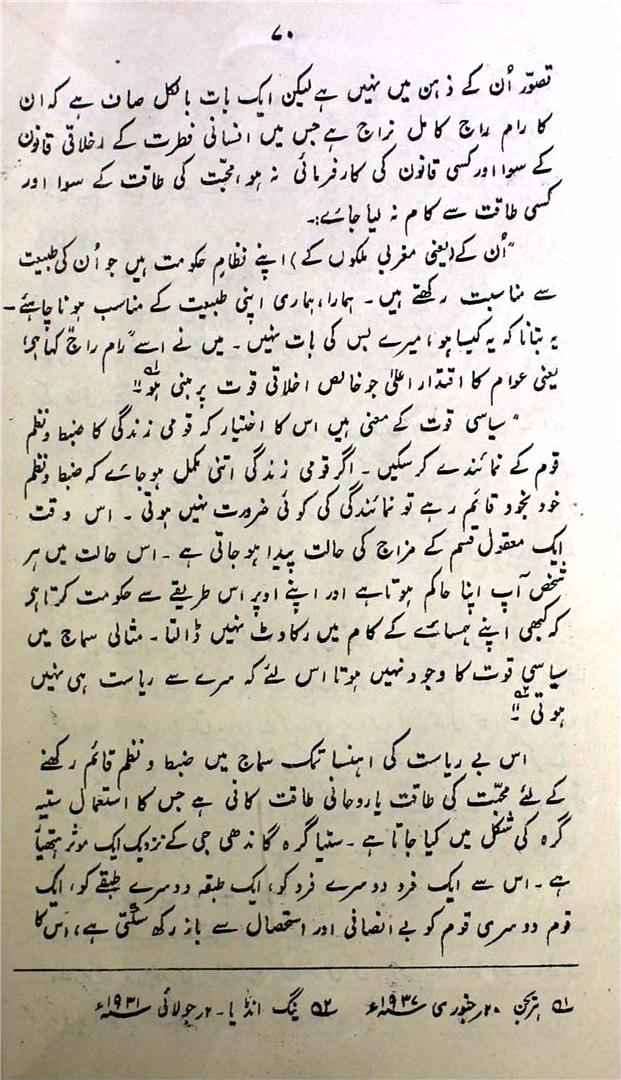 ۷۰
تصوّر اُن کے ذہن میں نہیں ہے لیکن ایک بات بالکل صاف ہے کہ ان
کا رام راج کامل نراج ہے جس میں انسانی فطرت کے اخلاقی قانون
کے سوا اور کسی قانون کی کارفرمائی نہ ہو، محبّت کی طاقت کے سوا اور
کسی طاقت سے کام نہ لیا جائے:۔
"اُن کے (یعنی مغربی ملکوں کے) اپنے نظامِ حکومت ہیں جو اُن کی طبیعت
سے مناسبت رکھتے ہیں۔ ہمارا، ہماری اپنی طبیعت کے مناسب ہونا چاہئے۔
یہ بتانا کہ یہ کیسا ہو، میرے بس کی بات نہیں۔ میں نے اسے "رام راج" کہا ہی؛
یعنی عوام کا اقتدار اعلیٰ جو خالص اخلاقی قوت پر مبنی ہو"۵۱
"سیاسی قوت کے معنی ہیں اس کا اختیار کہ قومی زندگی کا ضبط و نظم
قوم کے نمائندے کر سکیں۔ اگر قومی زندگی اتنی مکمل ہو جائے کہ ضبط و نظم
خود بخود قائم رہے تو نمائندگی کی کوئی ضرورت نہیں ہوتی۔ اس وقت
ایک معقول قسم کے مزاج کی حالت پیدا ہو جاتی ہے۔ اس حالت میں ہر
شخص آپ اپنا حاکم ہوتا ہے اور اپنے اوپر اس طریقے سے حکومت کرتا ہی
کہ کبھی اپنے ہمسائے کے کام میں رکاوٹ نہیں ڈالتا۔ مثالی سماج میں
سیاسی قوت کا وجود نہیں ہوتا اس لئے کہ سرے سے ریاست ہی نہیں
ہوتی"۵۲
اس بے ریاست کی اہنساتمک سماج میں ضبط و نظم قائم رکھنے
کے لئے محبّت کی طاقت یا روحانی طاقت کافی ہے جس کا استعمال ستیہ
گرہ کی شکل میں کیا جاتا ہے۔ ستیا گرہ گاندھی جی کے نزدیک ایک موثر ہتھیار
ہے۔ اس سے ایک فرد دوسرے فرد کو، ایک طبقہ دوسرے طبقے کو، ایک
قوم دوسری قوم کو بے انصافی اور استحصال سے باز رکھ سکتی ہے، اس کا
۵۱ ہریجن ۲۰؍ جنوری ۱۹۳۷ء ۵۲ ینگ انڈیا۔ ۲؍ جولائی ۱۹۳۱ء